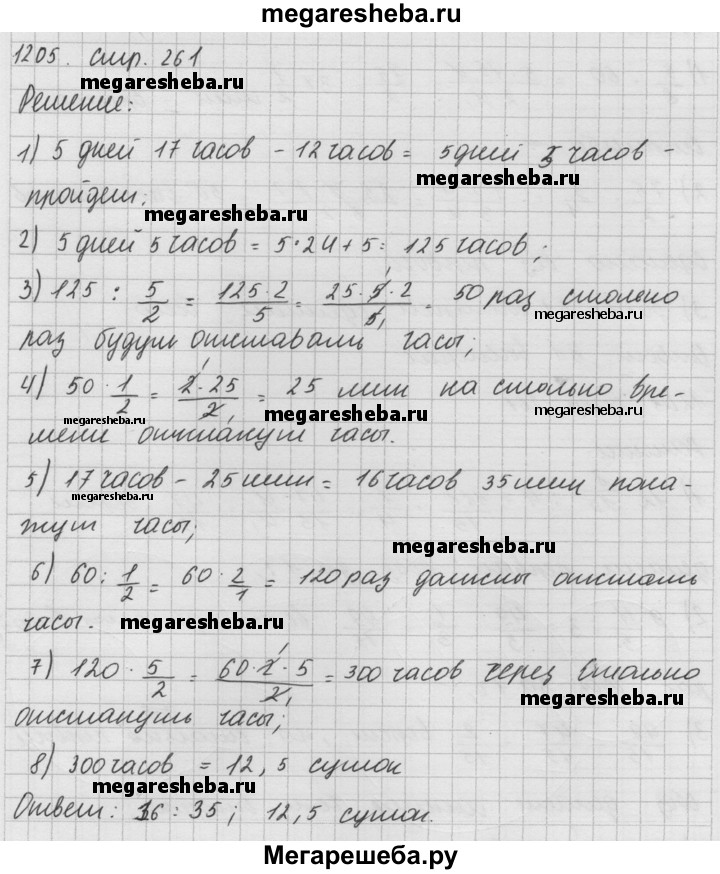 megaresheba.ru
1205. стр. 261
megaresheba.ru
Решение:
1) 5 дней 17 часов - 12 часов = 5 дней 5 часов -
megaresheba.ru
пройдет;
megaresheba.ru
2) 5 дней 5 часов = 5·24+5 = 125 часов;
3) 125 : 5/2 = 125·2/5 = 25·5·2/5 = 50 раз столько
megaresheba.ru
раз будут отставать часы;
4) 50 · 1/2 = 2·25/2 = 25 мин на столько вре-
megaresheba.ru megaresheba.ru megaresheba.ru
мени отстанут часы.
5) 17 часов - 25 мин = 16 часов 35 мин пока-
megaresheba.ru
жут часы;
megaresheba.ru
6) 60 : 1/2 = 60 · 2/1 = 120 раз должны отстать
часы.
megaresheba.ru
7) 120 · 5/2 = 60·2·5/2 = 300 часов через столько
megaresheba.ru
отстанут часы;
8) 300 часов = 12,5 суток
megaresheba.ru
Ответ: 16 : 35; 12,5 суток.
Мегарешеба.ру